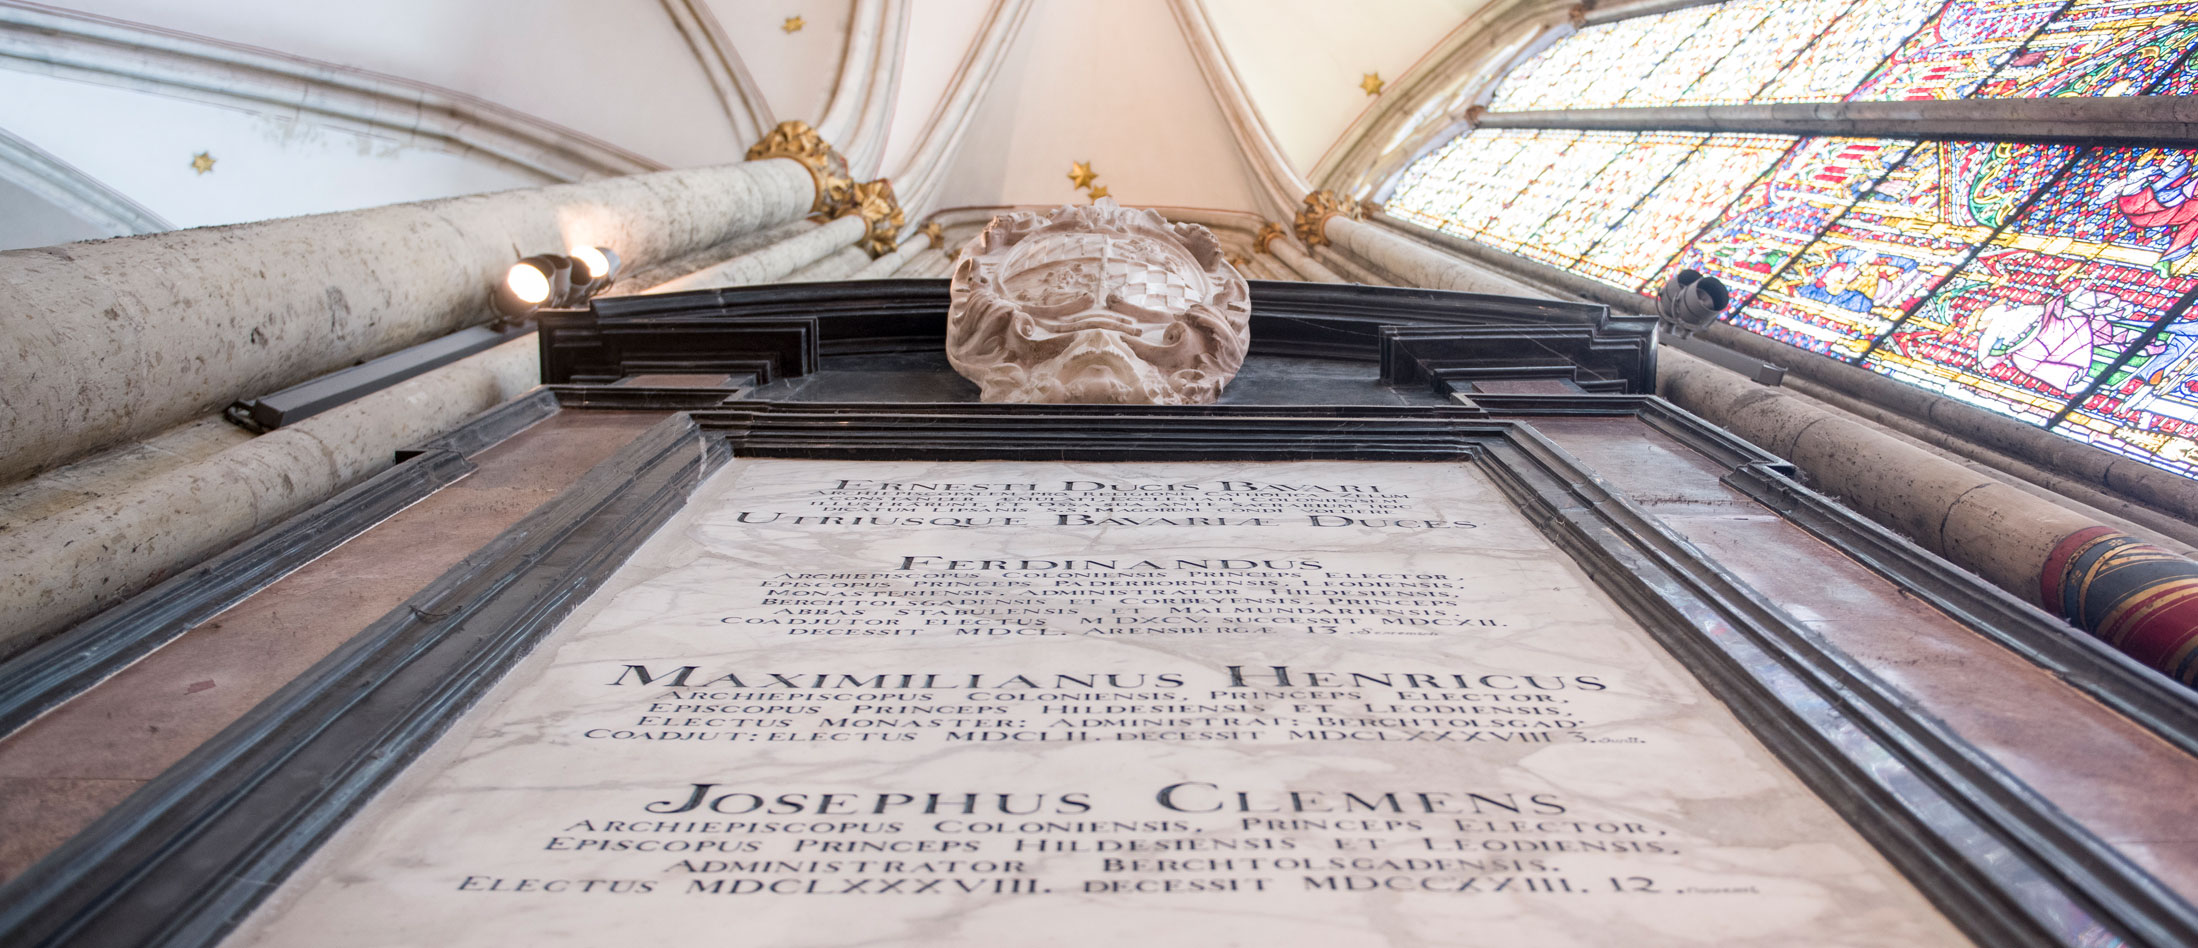 ERNESTI DUCIS BAVARI
ARCHIEPISCOPALEM PRO RELIGIONE CATHOLICA ZELUM
ILLUSTRARUNT, ET OSSA SUA ANTE SACRARIUM HOC
UTRIUSQUE BAVARIÆ DUCES
FERDINANDUS
ARCHIEPISCOPUS COLONIENSIS PRINCEPS ELECTOR,
EPISCOPUS PRINCEPS PADERBORNENSIS LEODIENSIS,
MONASTERIENSIS, ADMINISTRATOR HILDESIENSIS,
BERCHTOLSGADENSIS ET CORBEYENSIS, PRINCEPS
ABBAS STABULENSIS ET MALMUNDARIENSIS,
COADJUTOR ELECTUS MDXCV. SUCCESSIT MDCXII.
DECESSIT MDCL. ARENSBERGÆ 13.
MAXIMILIANUS HENRICUS
ARCHIEPISCOPUS COLONIENSIS, PRINCEPS ELECTOR,
EPISCOPUS PRINCEPS HILDESIENSIS ET LEODIENSIS,
ELECTUS MONASTER: ADMINISTRAT: BERCHTOLSGAD:
COADJUT: ELECTUS MDCLII. DECESSIT MDCLXXXVIII 3.
JOSEPHUS CLEMENS
ARCHIEPISCOPUS COLONIENSIS, PRINCEPS ELECTOR,
EPISCOPUS PRINCEPS HILDESIENSIS ET LEODIENSIS,
ADMINISTRATOR BERCHTOLSGADENSIS.
ELECTUS MDCLXXXVIII. DECESSIT MDCCXXIII. 12.